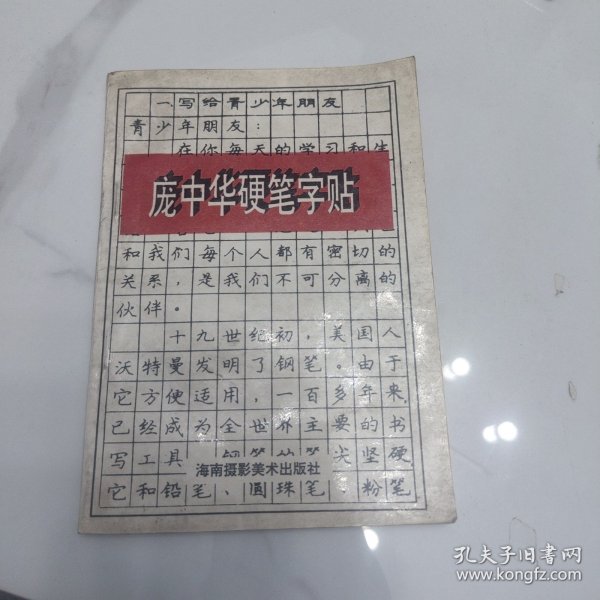 一、写给青少年朋友
青少年朋友：
在你每天的学习和生
庞中华硬笔字贴
和我们每个人都有密切的
关系，是我们不可分离的
伙伴。
十九世纪初，美国人
沃特曼发明了钢笔。由于
它方便适用，一百多年来
已经成为全世界主要的书
写工具 尖坚硬
海南摄影美术出版社
它和铅笔、圆珠笔、粉笔
孔夫子旧书网
www.kongfz.com